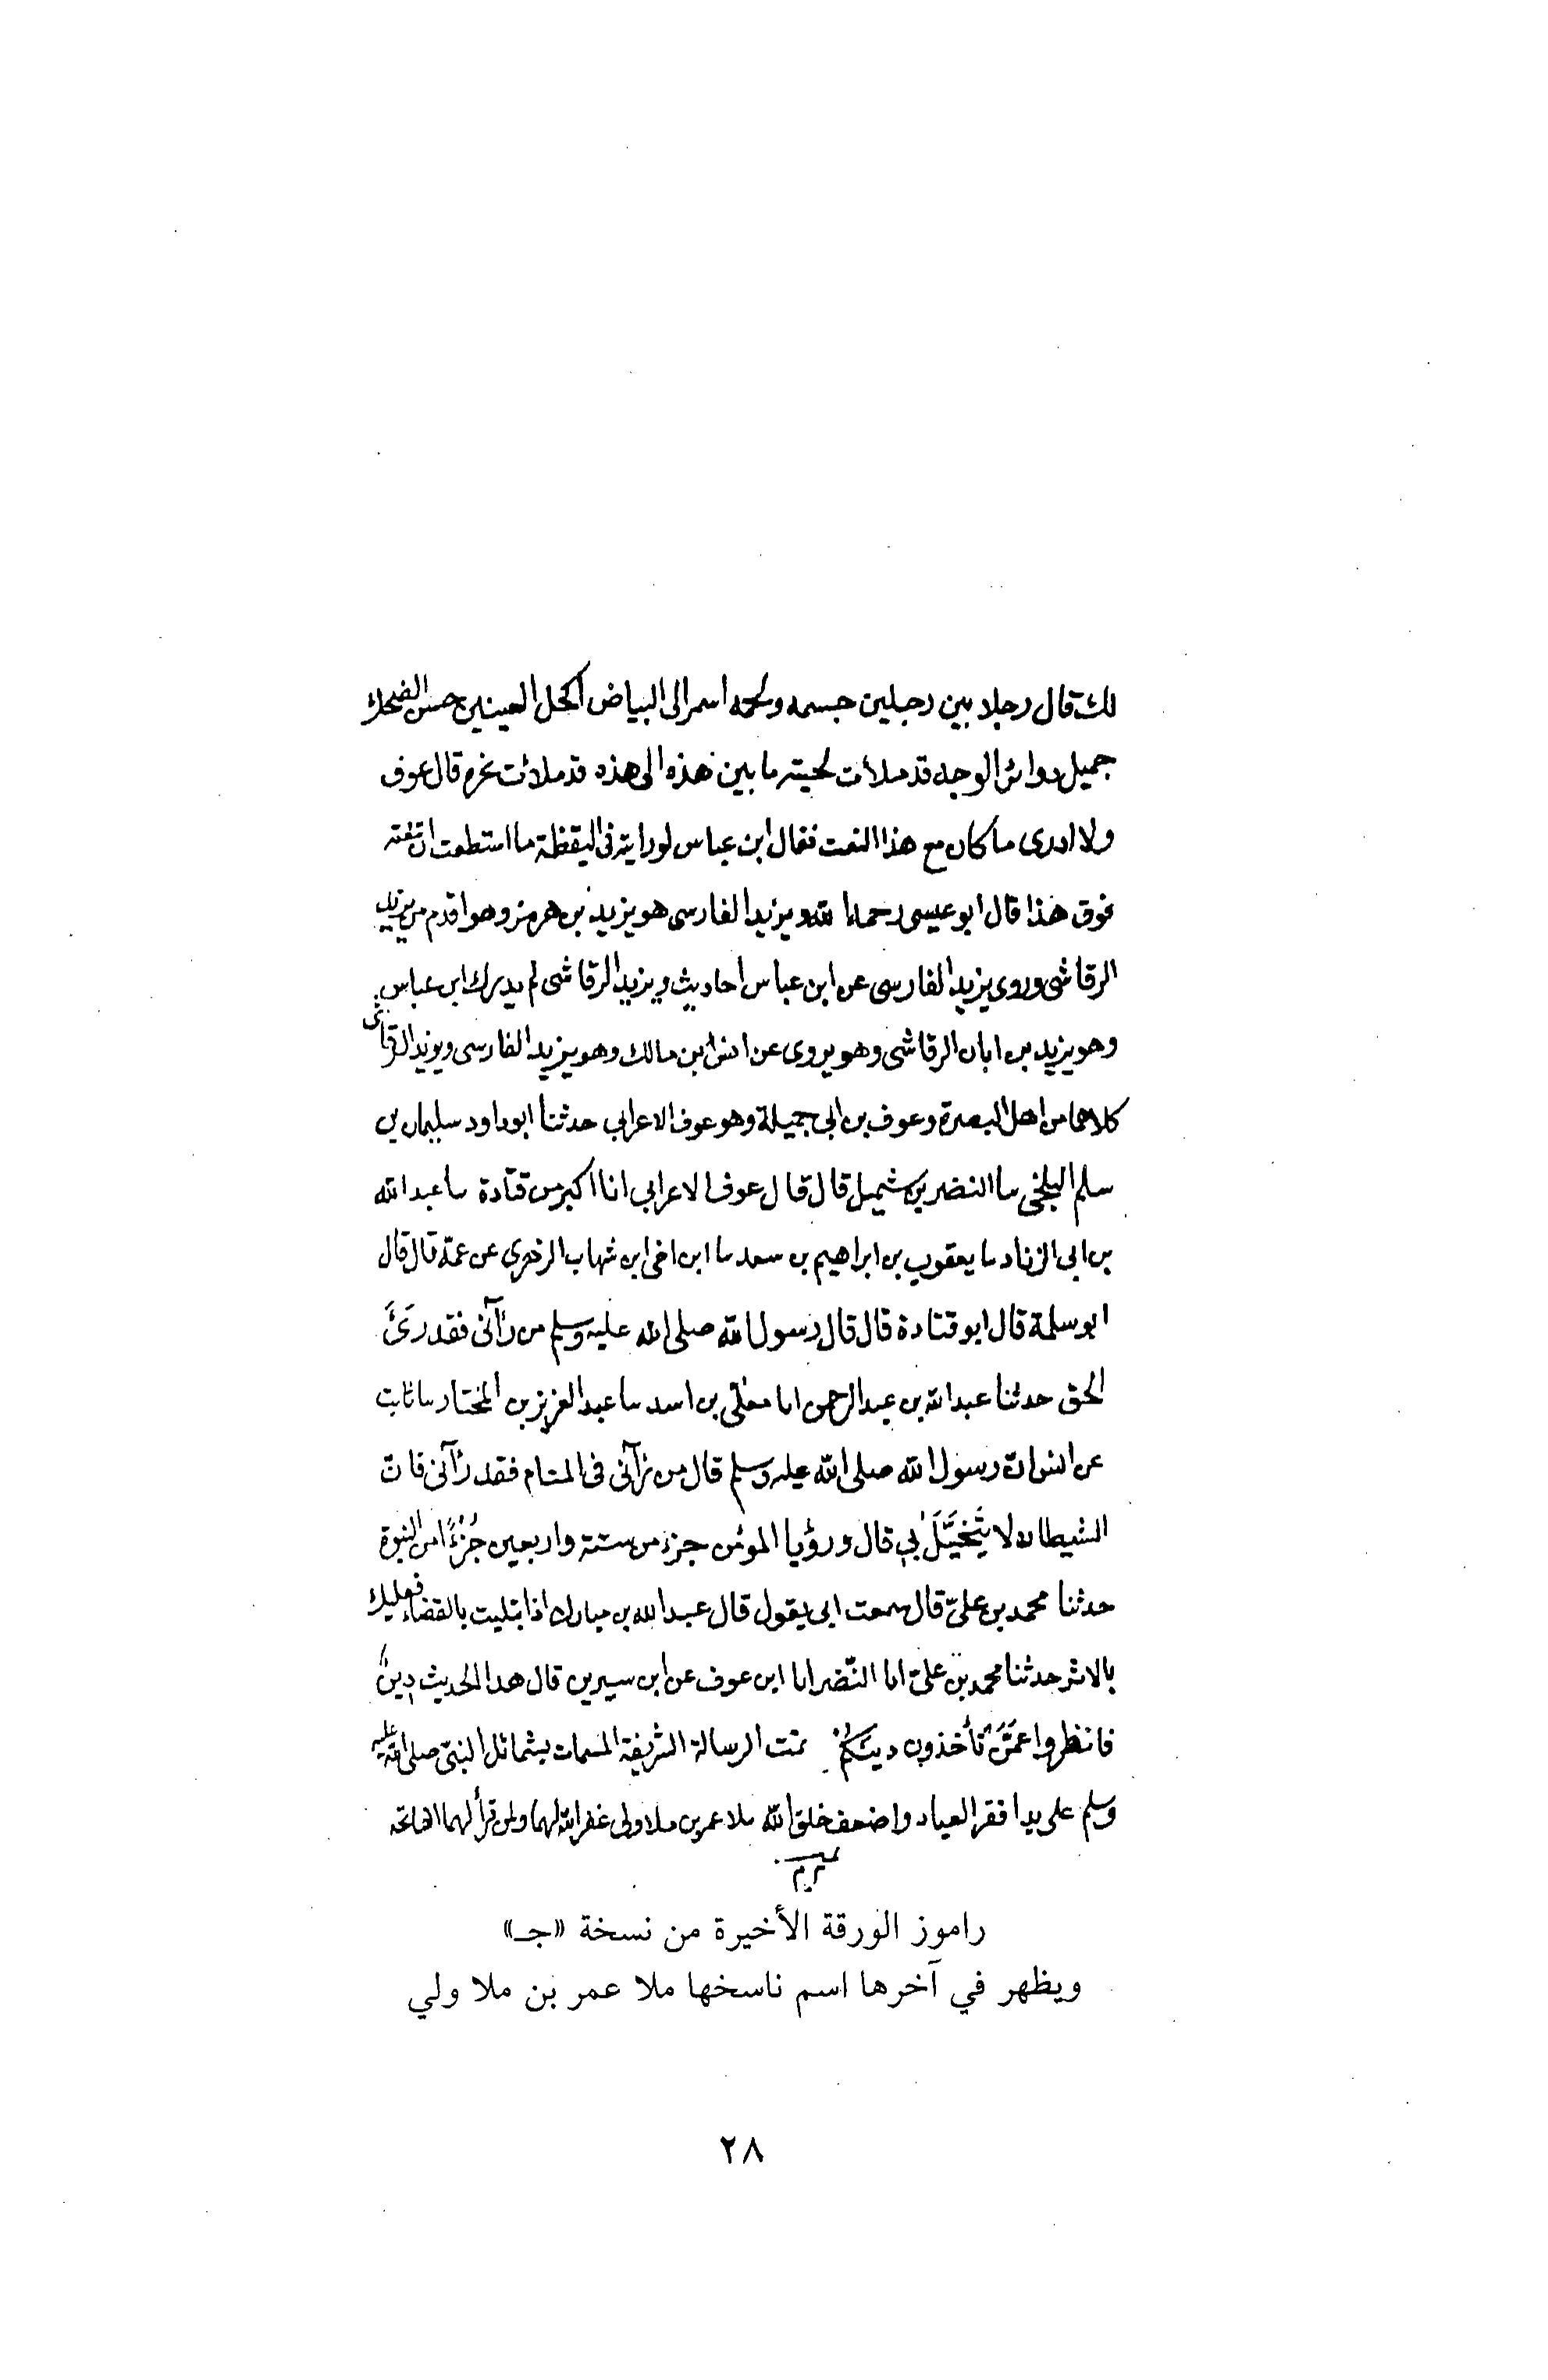 لك قال رجلا بين رجلين جسمه ولحمه اسمر الى البياض اكحل العينين حسن الضحك
جميل دوائر الوجه قد ملأت لحيته ما بين هذه الى هذه قد ملائت نحره قال عوف
ولا ادرى ما كان مع هذا النعت فقال ابن عباس لو رايته فى اليقظة ما استطعت ان تنعته
فوق هذا قال ابو عيسى رحمه الله ويزيد الفارسى هو يزيد بن هرمز وهو اقدم من يزيد
الرقاشى وروى يزيد الفارسى عن ابن عباس احاديث ويزيد الرقاشى لم يدرك ابن عباس
وهو يزيد بن ابان الرقاشى وهو يروى عن انس ابن مالك وهو يزيد الفارسى ويزيد الرقاشى
كلاهما من اهل البصرة وعوف بن ابى جميلة وهو عوف الاعرابى حدثنا ابو داود سليمان بن
سلم البلخى سا النضر بن شميل قال قال عوف الاعرابى انا اكبر من قتادة سا عبد الله
بن ابى الزناد سا يعقوب بن ابراهيم بن سعد سا ابن اخى ابن شهاب الزهرى عن عمه قال قال
ابو سلمة قال ابو قتادة قال قال رسول الله صلى الله عليه وسلم من رآنى فقد رَئَ
الحق حدثنا عبد الله بن عبد الرحمن انا معلّى بن اسد سا عبد العزيز بن المختار سا ثابت
عن انس انّ رسول الله صلى الله عليه وسلم قال من رآنى فى المنام فقد رآنى فانّ
الشيطان لا يَتَخَيَّلَ بى قال ورؤيا المؤمن جزء من ستة واربعين جُزْءًا من النبوة
حدثنا محمد بن علىّ قال سمعت ابى يقول قال عبد الله بن مبارك اذا ابتليت بالقضاء فعليك
بالاثر حدثنا محمد بن علىّ انا النّضر انا ابن عوف عن ابن سيرين قال هذا الحديث دينٌ
فانظروا عَمَّنْ تأخذون دينكم تمت الرسالة الشريفة المسمات بشمائل النبىّ صلى الله عليه
وسلم على يد افقر العباد واضعف خلق الله ملا عمر بن ملا ولى غفر الله لهما ولمن قرأ لهما الفاتحة
راموز الورقة الأخيرة من نسخة «جـ»
ويظهر في آخرها اسم ناسخها ملا عمر بن ملا ولي
٢٨